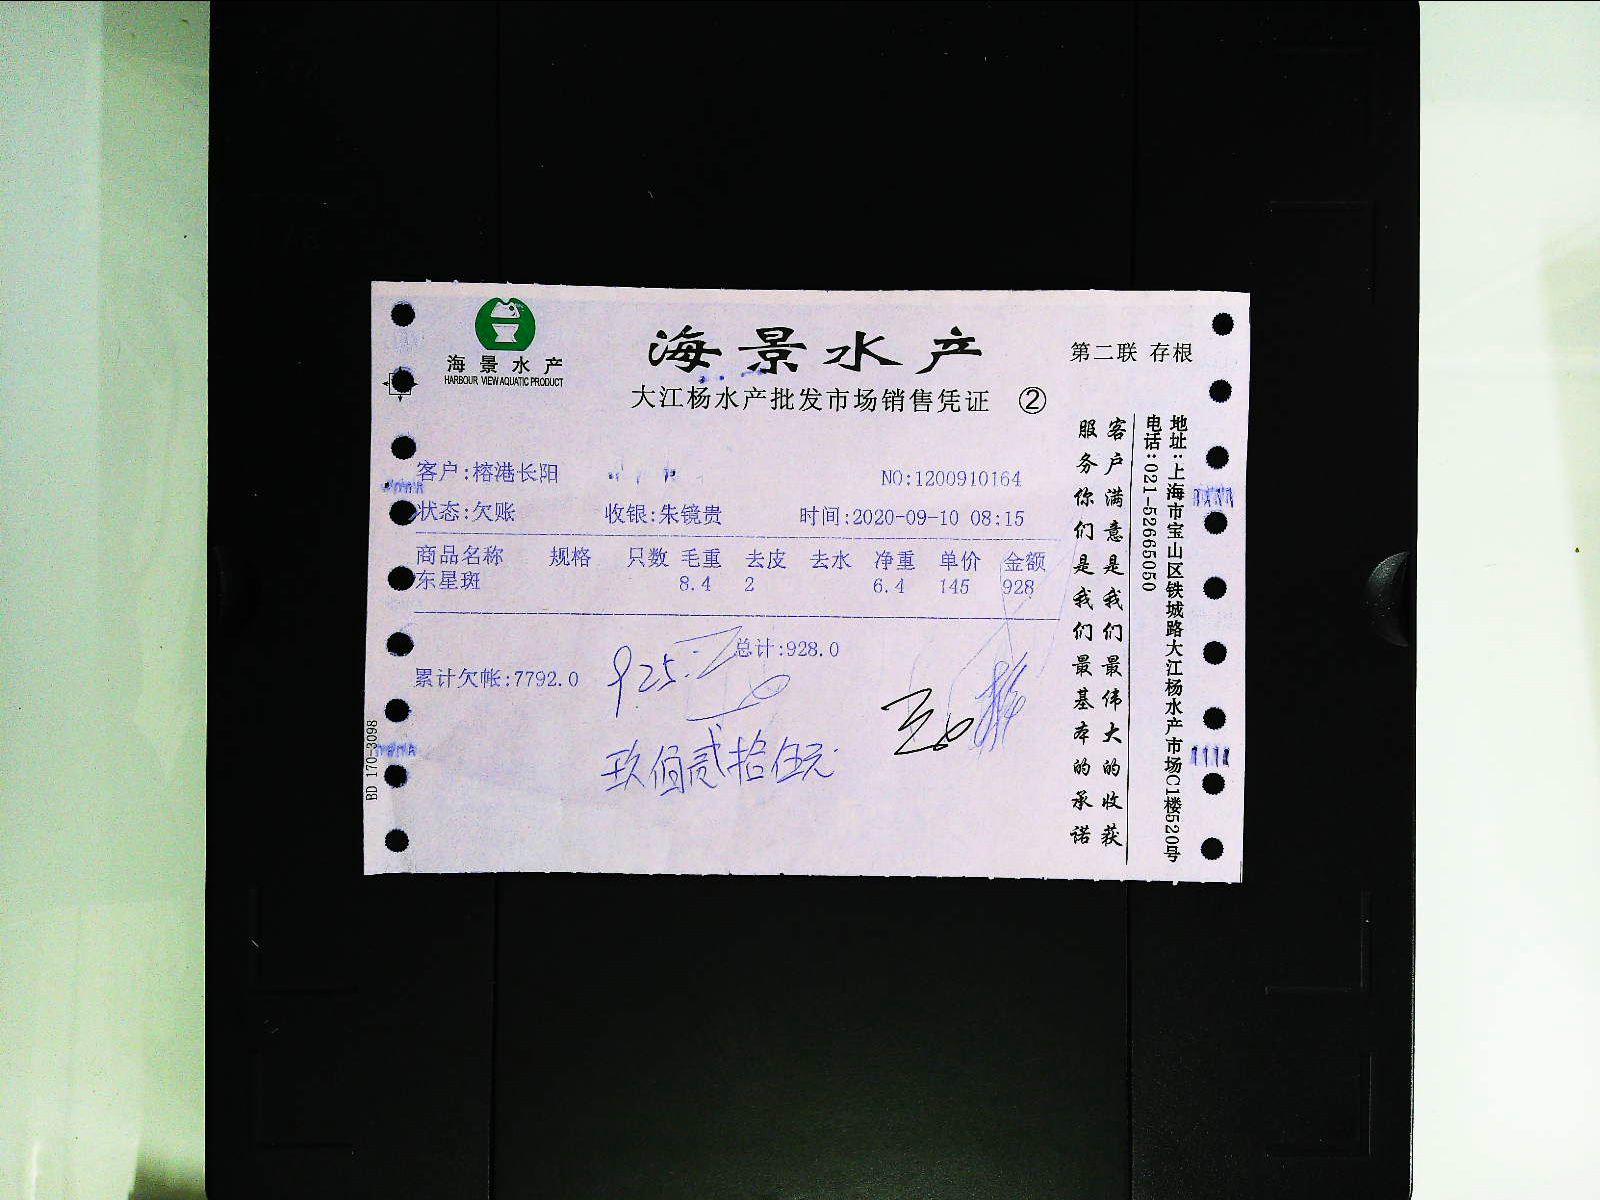 海景水产
HARBOUR VIEW AQUATIC PRODUCT
海景水产
大江杨水产批发市场销售凭证 ②
第二联 存根
客户:榕港长阳
NO:1200910164
状态:欠账 收银:朱镜贵 时间:2020-09-10 08:15
商品名称 规格 只数 毛重 去皮 去水 净重 单价 金额
东星斑 8.4 2 6.4 145 928
总计:928.0
累计欠帐:7792.0
925.
玖佰贰拾伍元
客户满意是我们最伟大的收获
服务你们是我们最基本的承诺
地址:上海市宝山区铁城路大江杨水产市场C1楼520号
电话:021-52665050
BD 170-3098